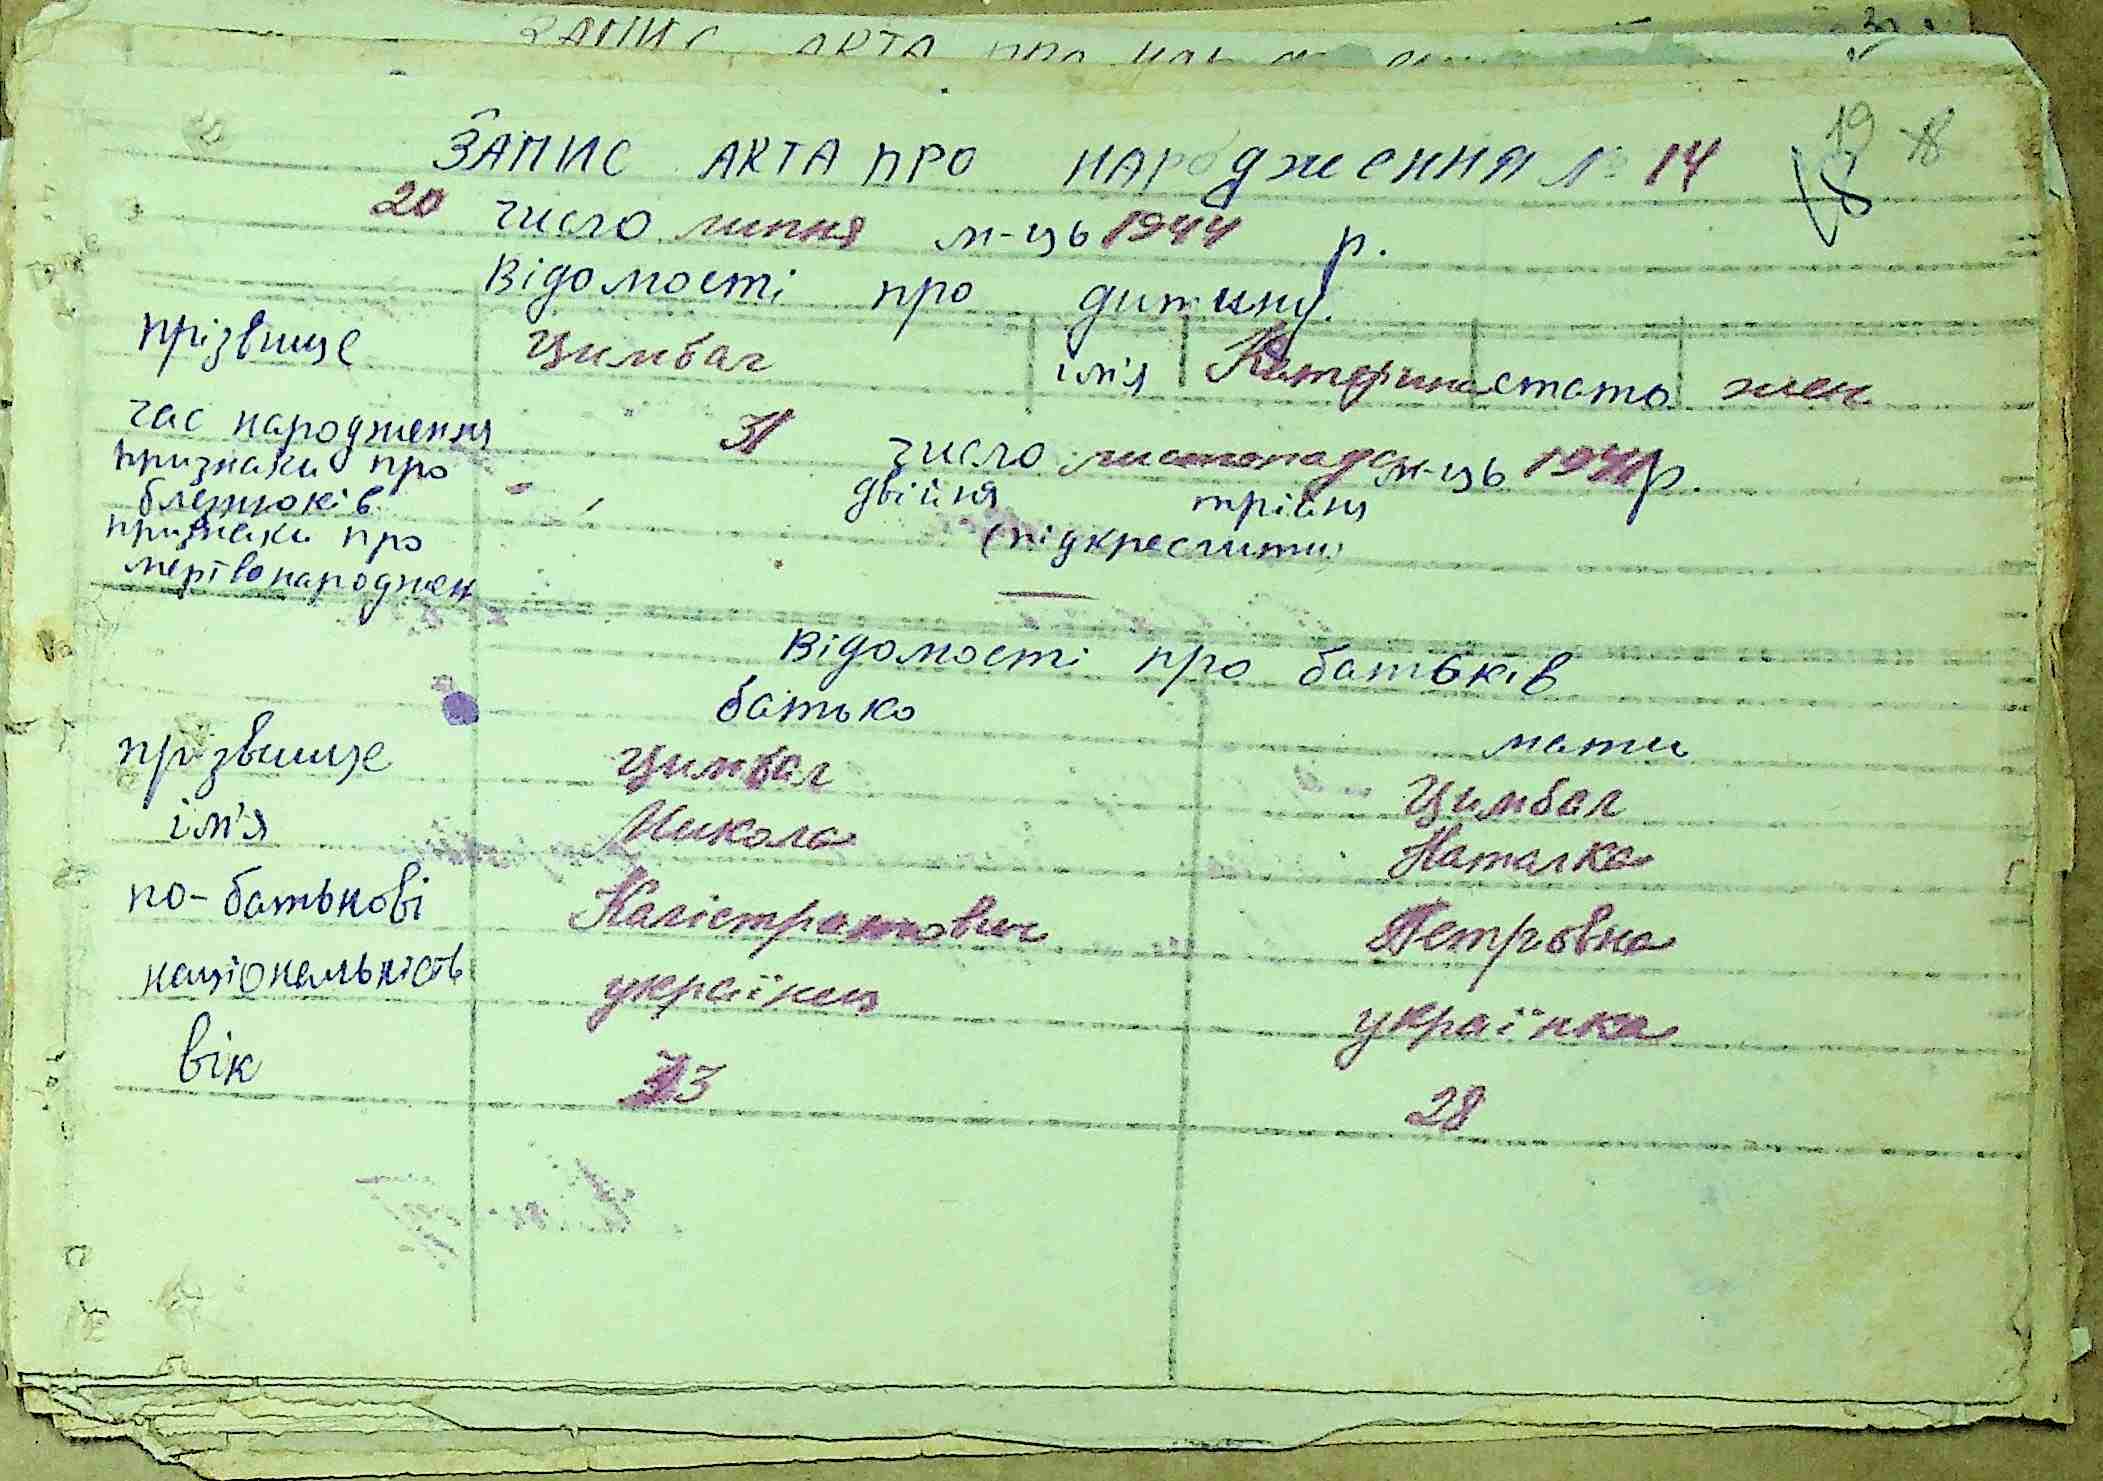 ЗАПИС АКТА ПРО НАРОДЖЕННЯ № 14
19 18
20 число липня м-ць 1944 р.
Відомості про дитину.
прізвище Цимбал ім'я Катерина стать жен
час народження 31 число листопада м-ць 1941 р.
признаки про близнюків двійня трійня
(підкреслити)
признаки про
мертвонароджен —
Відомості про батьків
батько мати
прізвище Цимбал Цимбал
ім'я Микола Наталка
по-батькові Калістратович Петровна
національність українец українка
вік 33 28